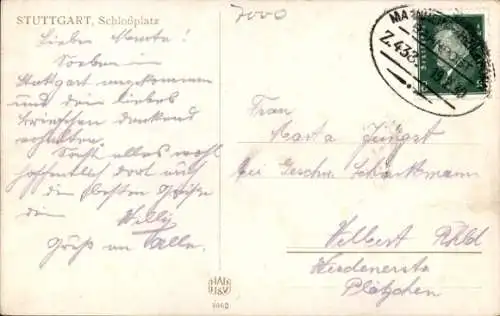 STUTTGART, Schloßplatz
7000
Lieber Marta!
Soeben in
Stuttgart angekommen
und dein liebes
Briefchen dankend
erhalten.
Sonst alles wohl
hoffentlich dort auch
die besten Grüße
dein
Willy
Grüß an Alle.
Frau
Marta Jüngst
bei Geschw.
Velbert Rhld
Plätzchen
Z.438